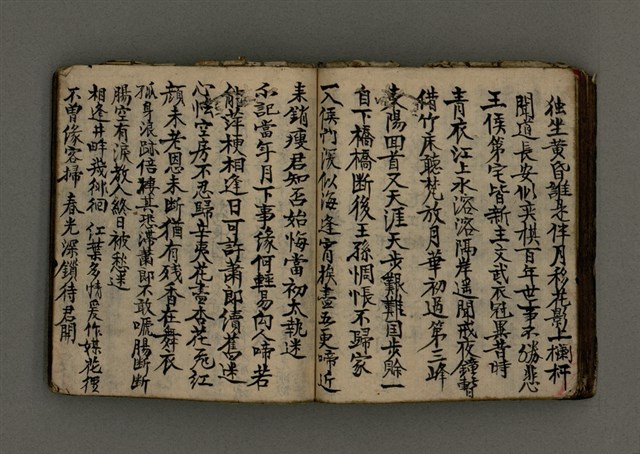 獨坐黃昏誰是伴月移花影上欄杆
聞道長安似奕棋百年世事不勝悲
王侯第宅皆新主文武衣冠異昔時
青衣江上水溶溶隔岸遙聞戒夜鐘暫
借竹床聽梵放月華初過第三峰
東陽回首又天涯天步艱難国步賒一
自下橋橋斷後王孫惆悵不歸家
一入侯門深似海逢宵挨盡五更啼近
来銷瘦君知否始悔當初太執迷
不記當年月下事緣何輕易向人啼若
能萍梗相逢日可許蕭郎續舊迷
心怯空房不忍歸辛夷花盡杏花飛紅
顏未老恩未斷猶有殘香在舞衣
孤身浪跡倍轉其恐滯蕭郎不敢啼腸斷断
腸空有淚教人終日被愁迷
相逢井畔幾徘徊 紅葉多情爰作媒花徑
不曾緣客掃 春光深鎖待君開